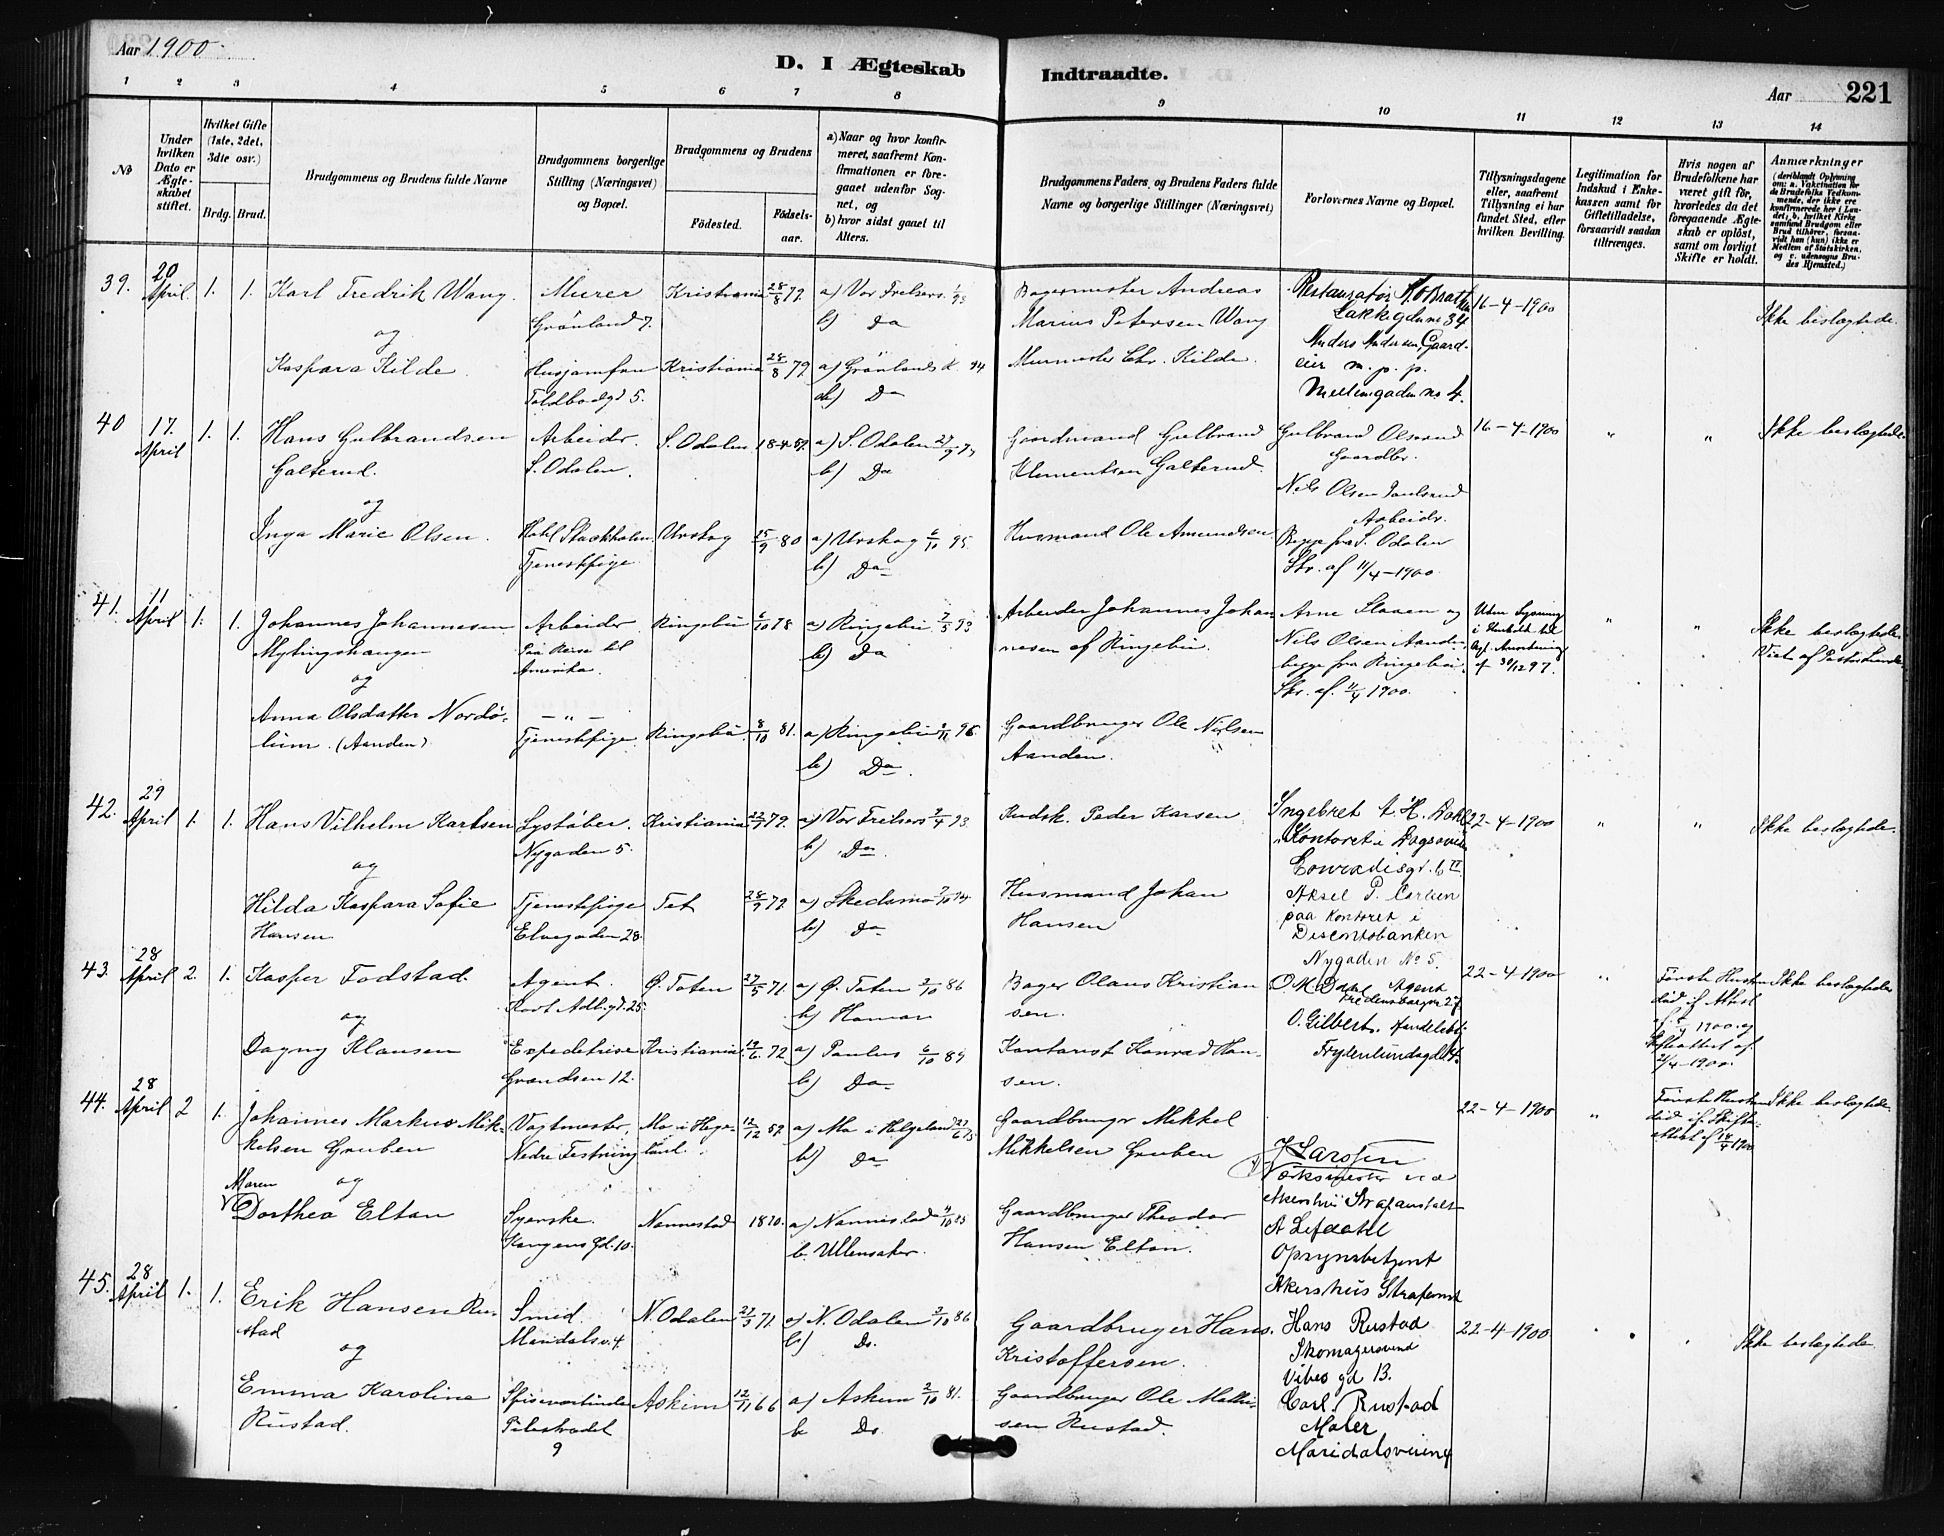 Aar 1900.
D. I Ægteskab Indtraadte.
Aar 221
1 2 3 4 5 6 7 8 9 10 11 12 13 14
No
Under hvilken Dato er Ægteskabet stiftet.
Hvilket Gifte (1ste, 2det, 3die osv.)
Brdg. Brud.
Brudgommens og Brudens fulde Navne
Brudgommens borgerlige Stilling (Næringsvei) og Bopæl.
Brudgommens og Brudens
Fødested.
Fødselsaar.
a) Naar og hvor konfirmeret, saafremt Konfirmationen er foregaaet udenfor Sognet, og
b) hvor sidst gaaet til Alters.
Brudgommens Faders, og Brudens Faders fulde Navne og borgerlige Stillinger (Næringsvei)
Forlovernes Navne og Bopæl.
Tillysningsdagene eller, saafremt Tillysning ei har fundet Sted, efter hvilken Bevilling.
Legitimation for Indskud i Enkekassen samt for Giftetilladelse, forsaavidt saadan tiltrænges.
Hvis nogen af Brudefolkene har været gift før, hvorledes da det foregaaende Ægteskab er opløst, samt om lovligt Skifte er holdt.
Anmærkninger (deriblandt Oplysning om: a. Vakcination for de Brudefolks Vedkommende, der ikke ere konfirmerede her i Landet, b. hvilket Kirkesamfund Brudgom eller Brud tilhører, forsaavidt han (hun) ikke er Medlem af Statskirken, og c. udensogns Brudes Hjemsted.)
39. 20 April 1. 1. Karl Fredrik Wang. Murer Kristiania 28/8 79. a) Vor Frelsers Bagermester Andreas Restauratør 16-4-1900 Ikke beslægtede.
Grønland 7. b) Do Marius Petersen Wang Lakkegaden 34
og Anders Andersen, Gaard-
Kaspara Kilde Husjomfru Kristiania 28/8 79. a) Grønlands K. 94 Murmester Chr. Kilde. eier m. p. p.
Toldbodgd 5. b) Do No 4.
40 17. April 1. 1. Hans Gulbrandsen Arbeider. S. Odalen 18-4-59. a) S. Odalen Gaardmand Gulbrand Gulbrand Olsrud 16-4-1900 " " Ikke beslægtede.
Galterud. S. Odalen. b) Do Klementsen Galterud. Gaardbr.
og Nils Olsen
Arbeidr.
Inga Marie Olsen. Hotel Stockholm. Urskog 25/9 80 a) Urskog 6/10 95. Husmand Ole Amundsen Begge fra S. Odalen
Tjenestpige. b) Do Skr. af 11/4-1900.
41. 11 April 1. 1. Johannes Johannesen Arbeider Ringebu 6/10 78 a) Ringebu 7/5 93 Arbeider Johannes Johan- Arne Slaaen og Uden Lysning " " Ikke beslægtede.
Mylingshaugen Paa Reise til b) Do nesen af Ringebu. Nils Olsen Aanden i Henhold til Viet af Pastor
og Amerika. begge fra Ringebu. af 30/12 97.
Skr. af. 11/4 1900.
Anna Olsdatter Nordø- — " — Gaardbruger Ole Nilsen
lium. (Aanden) Tjenestpige. Ringebu. 8/10 81. a) Ringebu 96. Aanden.
b) Do.
42. 29 April 1. 1. Hans Vilhelm Karlsen Lystøber. Kristiania 79. a) Vor Frelsers 93. Kudsk. Peder Karsen Ingebret A. H. Dahl 22-4-1900 " " Ikke beslægtede.
Nygaden 5. b) Do Kontoret i
og Conradisgd. 6 II
Hilda Kaspara Sofie Tjenestpige Fet 28/9 79 a) Skedsmo 94 Husmand Johan Aksel P. Carlsen
Hansen Elvegaden 28. b) Do Hansen paa Kontoret i
Discontobanken
Nygaden No 5.
43. 28 April 2. 1. Kasper Fodstad. Agent. Ø. Toten 27/5 71 a) Ø. Toten 3/10 86 Bager Olaus Kristian O. M. Dahl Agent 22-4-1900 " Første Hustru Ikke beslægtede
Kort Adlrsgd. 25. b) Hamar sen. Fredensborgvn 27. død if. Attest
og O. Gilbert. Handelsbetj. af 1900. og
Dagny Klausen Expeditrise Kristiania 72 a) Paulus 6/10 89 Kontorist Konrad Han- Frydenlundsgd 14. Skifteattest af.
Grændsen 12. b) Do sen. 2/4-1900.
44. 28 April 2 1. Johannes Markus Mik- Vagtmester, Mo i Helge- 12/12 57 a) Mo i Helgeland Gaardbruger Mikkel 22-4-1900 " Første Hustru Ikke beslægtede.
kelsen Gruben Nedre Festning land. b) Do Mikkelsen Gruben J. Larssen død if. Skifte-
Maren og Værksmester ved attest af 18/4 1900
Dorthea Eltan Syerske. Nannestad 1870. a) Nannestad 4/10 85 Gaardbruger Theodor Akershus Strafanstalt
Kongens Gd. 10. b. Ullensaker. Hansen Eltan. A Lefdahl
Opsynsbetjent
Akershus Strafanst
45. 28 April 1. 1. Erik Hansen Ru- Smed. N. Odalen 71 a) N. Odalen 3/10 86 Gaardbruger Hans Hans Rustad 22-4-1900 " " Ikke beslægtede.
stad Maridalsv. 4. b) Do. Kristoffersen. Skomagersvend
og Vibes gd 13.
Emma Karoline Spiseværtinde Askim 12/11 66 a) Askim 2/10 81. Gaardbruger Ole Mathi- Carl. Rustad
Rustad. Pilestrædet b Do. sen Rustad. Maler
9 Maridalsveien 4